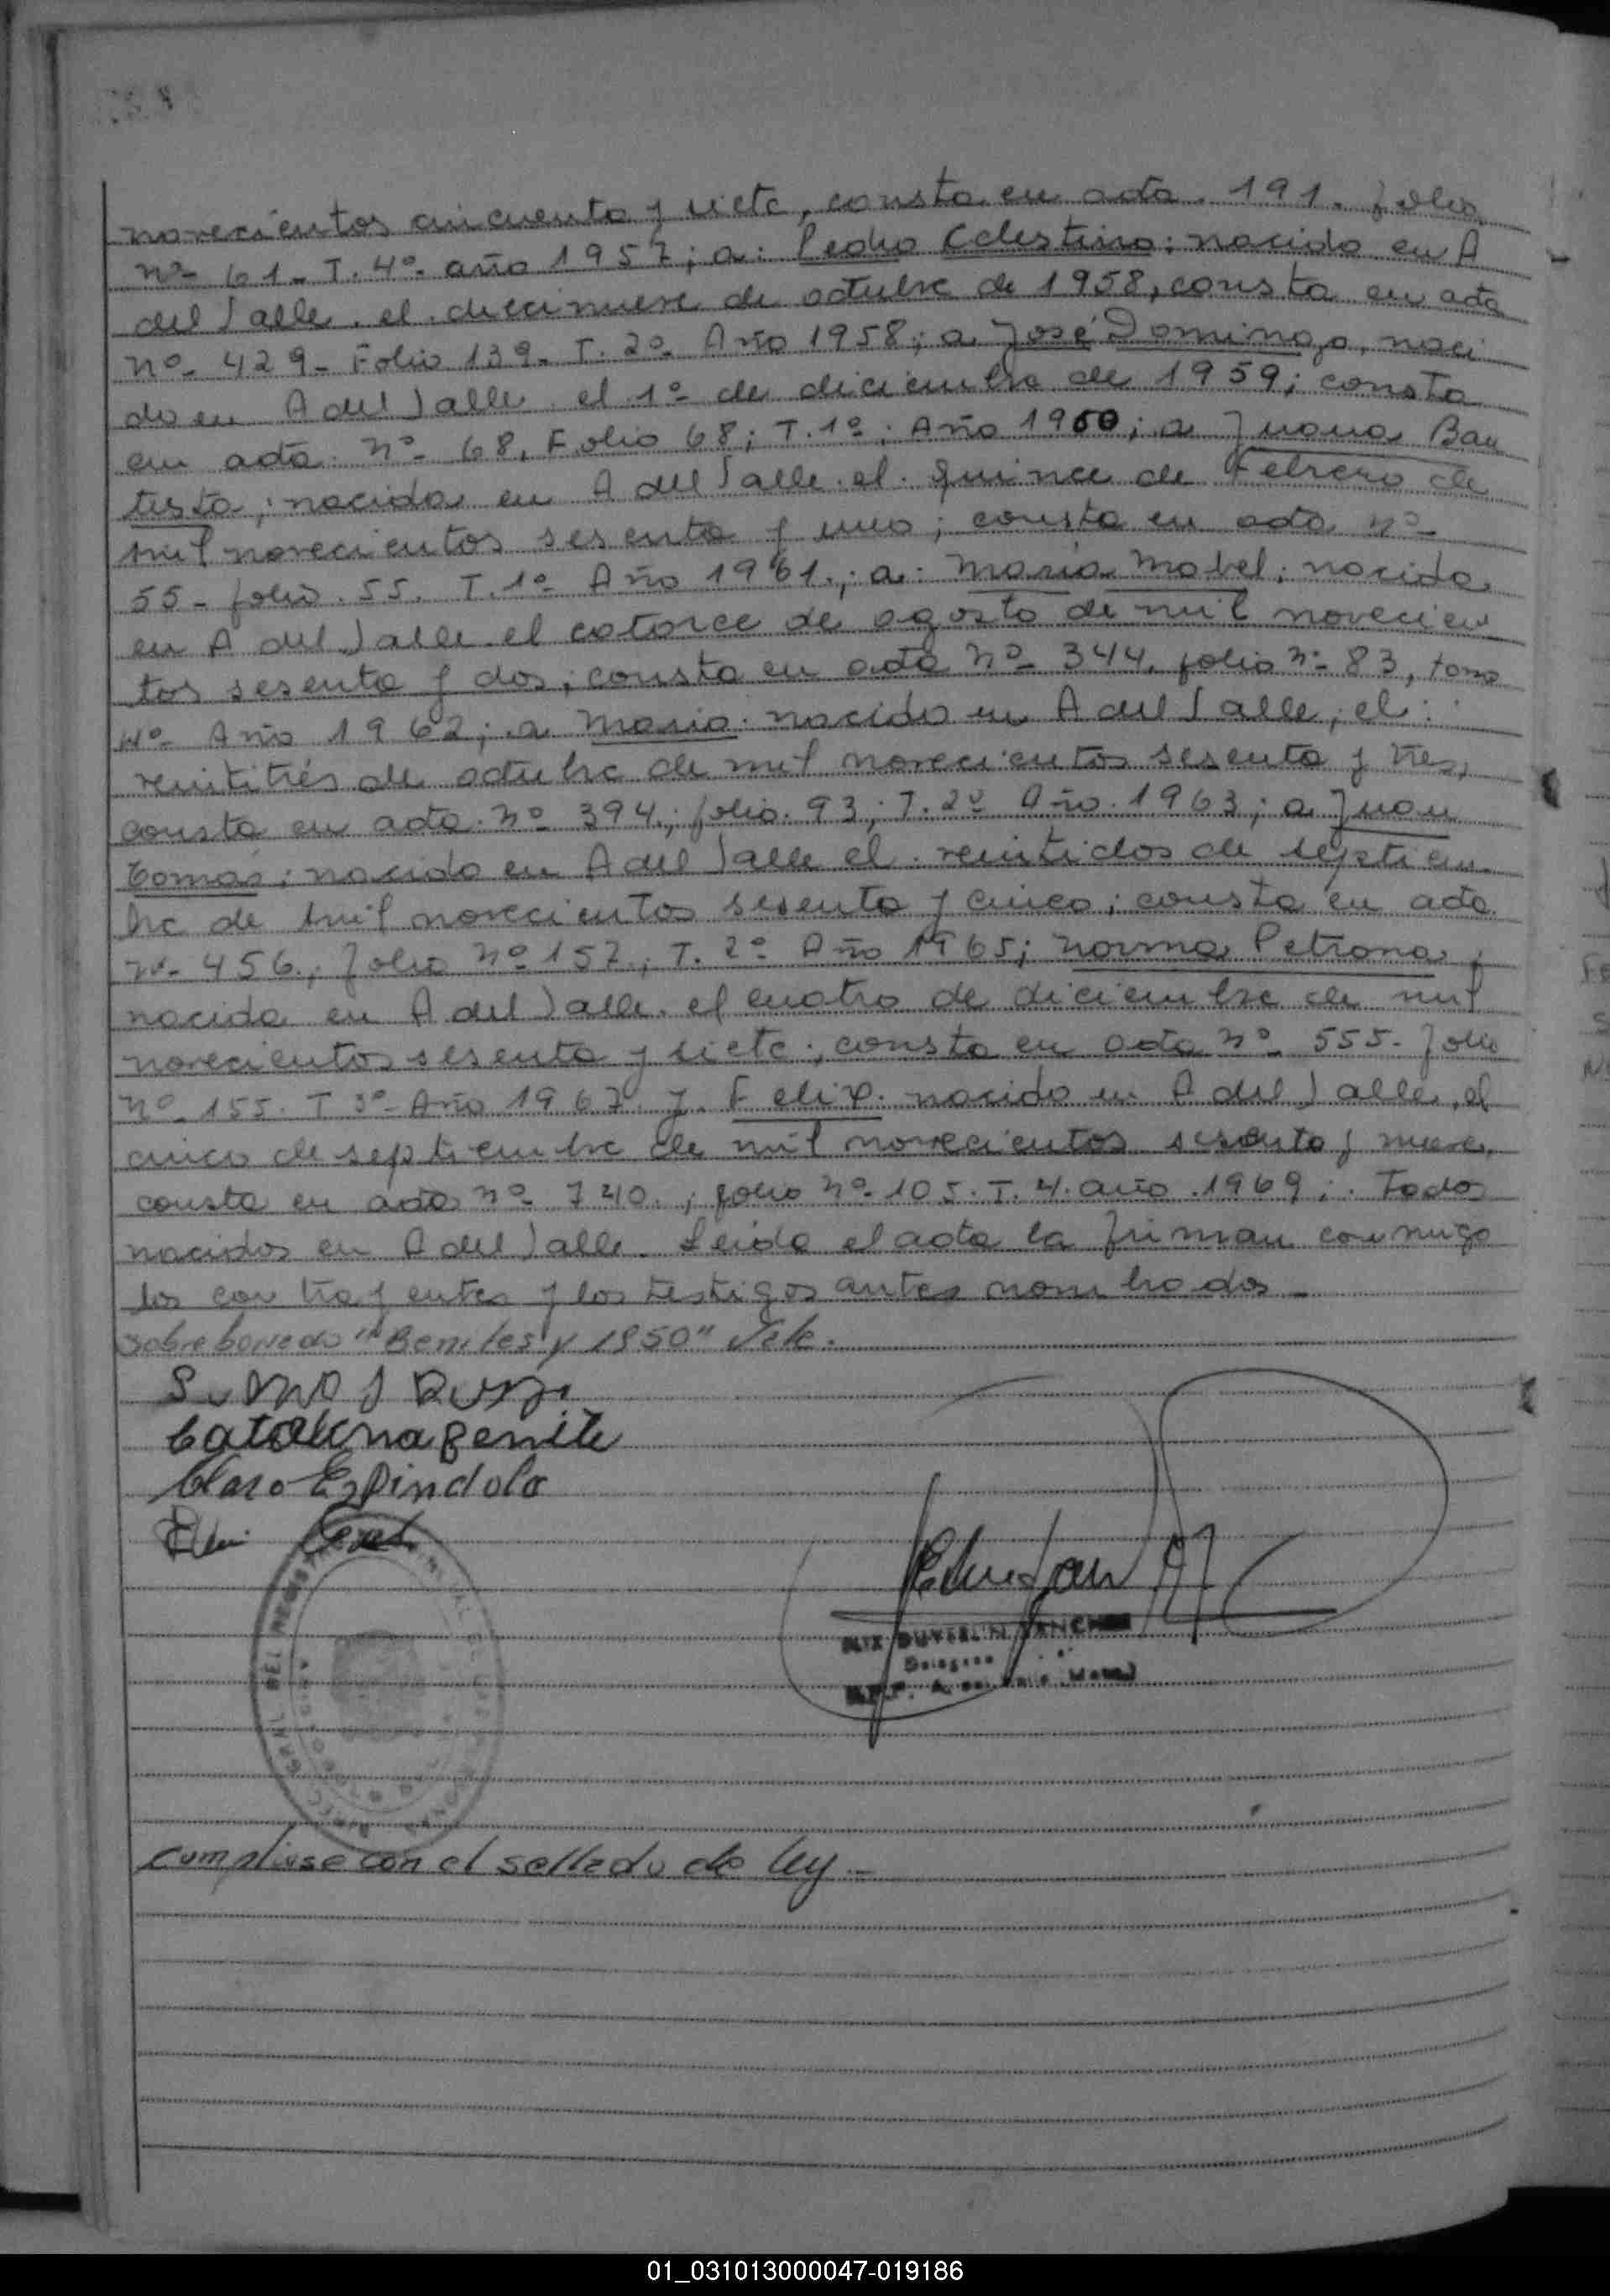 novecientos cincuenta y siete, consta en acta. 191. folio
nº- 61- T. 4º- año 1957; a: Pedro Celestino; nacido en A
del Valle. el. diecinueve de octubre de 1958, consta en acta
nº- 429- Folio 139- T. 2º- Año 1958; a José Domingo, naci
do en A del Valle. el 1º- de diciembre de 1959; consta
en acta. nº- 68, Folio 68; T. 1º; Año 1960; a Juana Bau
tista; nacida en A del Valle. el. quince de Febrero de
mil novecientos sesenta y uno; consta en acta nº-
55- folio. 55. T. 1º- Año 1961.; a. María Mabel; nacida
en A del Valle. el catorce de agosto de mil novecien
tos sesenta y dos; consta en acta nº- 344. folio nº- 83, tomo
4º- Año 1962; a Mario. nacido en A del Valle; el:
veintitrés de octubre de mil novecientos sesenta y tres,
consta en acta. nº- 394.; folio. 93; T. 2º Año. 1963; a Juan
Tomás; nacido en A del Valle el. veintidos de septiem
bre de mil novecientos sesenta y cinco; consta en acta
nº- 456., folio nº 157.; T. 2º- Año 1965; Norma Petrona,
nacida en A del Valle. el cuatro de diciembre de mil
novecientos sesenta y siete; consta en acta nº- 555- folio
nº- 155. T 3º- Año 1967. y. Felix. nacido en A del Valle, el
cinco de septiembre de mil novecientos sesenta y nueve,
consta en acta nº- 740.; folio nº- 105. T. 4. año. 1969;. Todos
nacidos en A del Valle. Leida el acta la firman conmigo
los contrayentes y los testigos antes nombrados-
sobre borrado "Benites y 1950" Vale.
Catalina Benite
Claro Espindola
Delegado
cumplase con el sellado de ley-
01_031013000047-019186